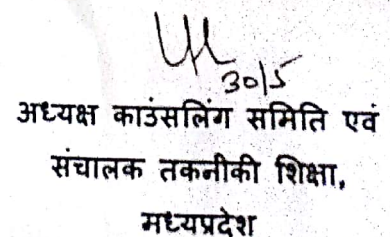 30/5
अध्यक्ष काउंसलिंग समिति एवं
संचालक तकनीकी शिक्षा,
मध्यप्रदेश